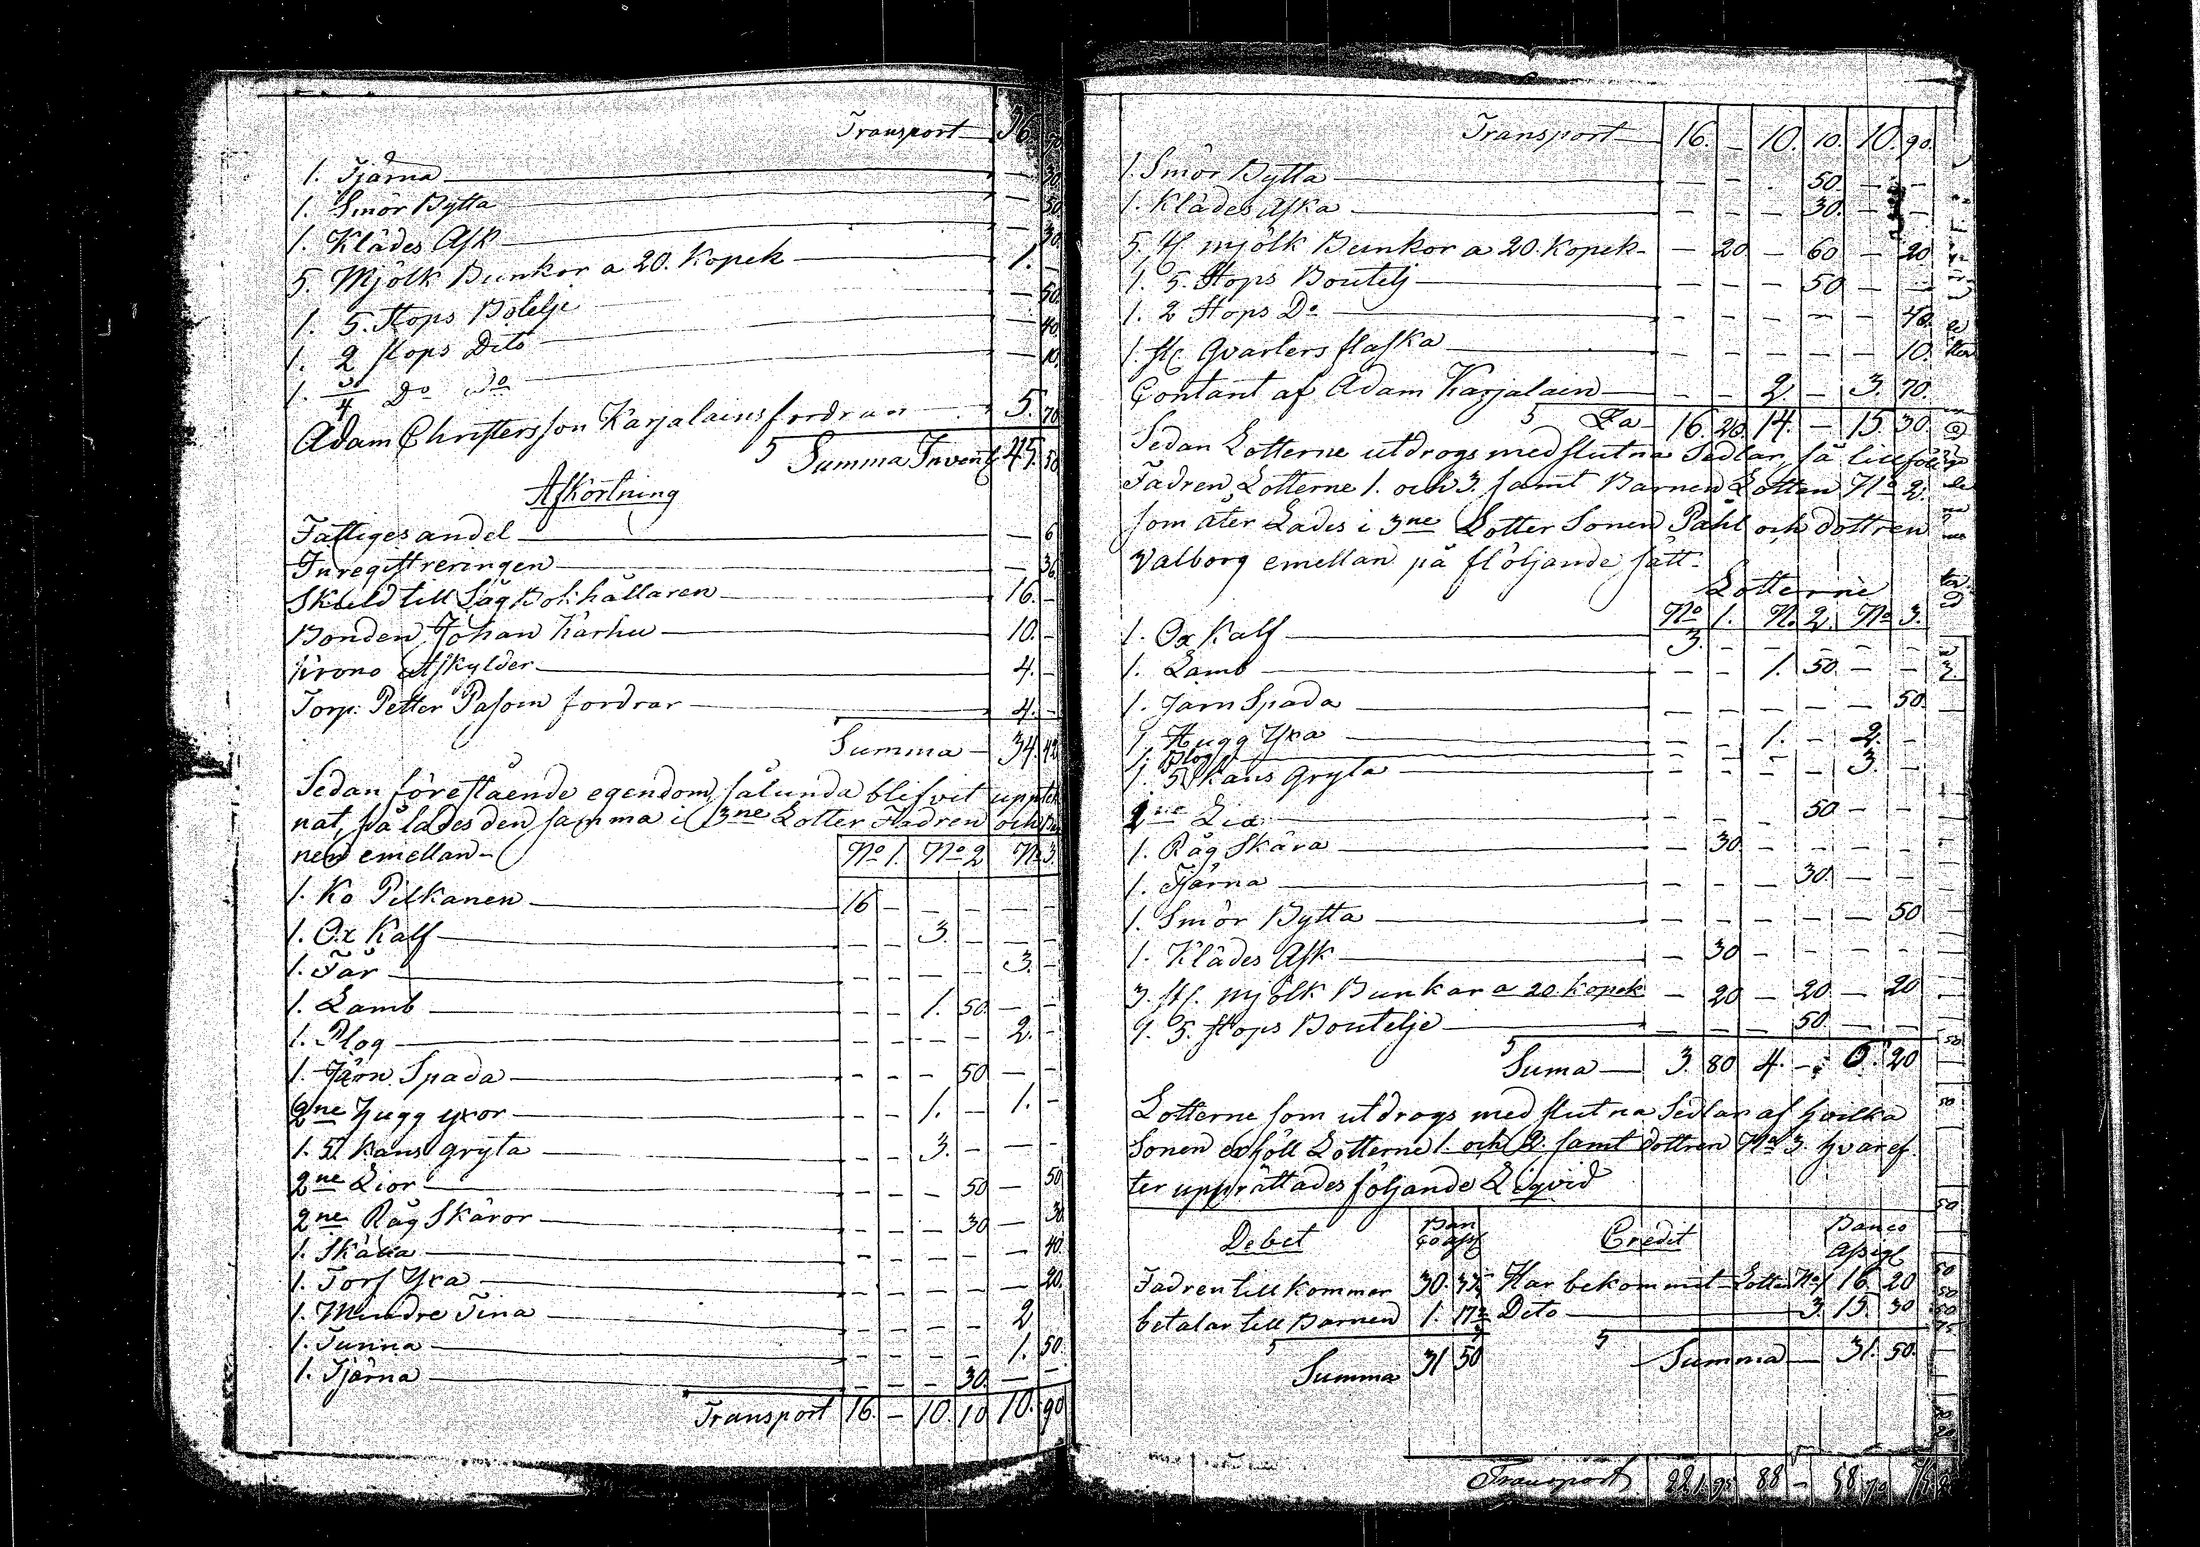 Transport 36. 70
1. Tjärna — 30
1. Smör Bytta — 50
1. Klädes Ask — 30
5. Mjölk Bunkor a 20. Kopek 1. –
1. 5. Stops Botelje — 50
1. 2 stops Dito — 40
1. 3/4 Do Do — 10
Adam Christersson Karjalains fordran 5. 70
Summa Invent 45. 50
Afkortning
Fattiges andel — 6
Inregistreringen — 36
Skuld till Såg Bokhållaren 16. –
Bonden Johan Karhu 10. –
Krono Utskylder 4. –
Torp. Petter Pasoin fordrar 4. –
Summa 34. 42
Sedan förestående egendom sålunda blifvit uppteck
nat, så lades den samma i 3ne Lotter Fadren och Bar
nen emellan – No 1. No 2 No 3.
1. Ko Pilkanen 16 – – – – –
1. Ox Kalf – – 3. – – –
1. Får – – – – 3. –
1. Lamb – – 1. 50 – –
1. Plog – – – – 2. –
1. Järn Spada – – – 50 – –
2ne Hugg yxor – – 1. – 1. –
1. 5 Kans gryta – – 3. – – –
2ne Lior – – – 50 – 50
2ne Råg Skäror – – – 30 – 30
1. Skåra – – – – – 40
1. Torf Yxa – – – – – 20.
1. Mindre Tina – – – – 2
1. Tunna – – – – 1. 50.
1. Tjärna – – – 30. – –
Transport 16. – 10. 10 10. 90
Transport 16. – 10. 10. 10. 90.
1. Smör Bytta – – . 50. – –
1. Klädes Aska – – – 30. – –
5. st. mjölk Bunkor a 20. Kopek – 20 – 60 – 20
1. 5. Stops Boutelj – – – 50 – –
1. 2 Stops Do – – – – – 40.
1. st. Qvarters flaska – – – – – 10.
Contant af Adam Karjalain – – 2. – 3. 70.
Sa 16. 20. 14. – 15. 30.
Sedan Lotterne utdrogs med slutna Sedlar, så tillföll
Fadren Lotterne 1. och 3. samt Barnen Lotten No 2.
som åter Lades i 3ne Lotter Sonen Påhl och dottren
Valborg emellan på flöljande sätt.
Lotterne
No 1. N. 2. No 3.
1. Ox Kalf 3. – – – – –
1. Lamb – – 1. 50 – –
1. Järn Spada – – – – – 50.
1. Hugg Yxa – – 1. – 2. –
1. Plog
1. 5 Kans Gryta – – – – 3. –
2ne Lia – – – 50 – –
1. Råg Skära – 30 – – – –
1. Tjärna – – – 30. – –
1. Smör Bytta – – – – – 50
1. Klädes Ask – 30 – – – –
3. st. mjölk Bunkar a 20. Kopek – 20 – 20 – 20
1. 5. stops Boutelje – – – 50. – –
Suma 3. 80 4. – 6. 20
Lotterne som utdrogs med slutna Sedlar af hvilka
Sonen erhöll Lotterne 1. och 2. samt dottren No 3. hvaref
ter upprättades följande Liqvid
Debet Banco assig Credit Banco Assig
Fadren tillkommer 30. Har bekommit Lotten No 1 16. 20
betalar till Barnen 1. Dito 3. 15. 30
Summa 31 50 Summa 31. 50.
Transport